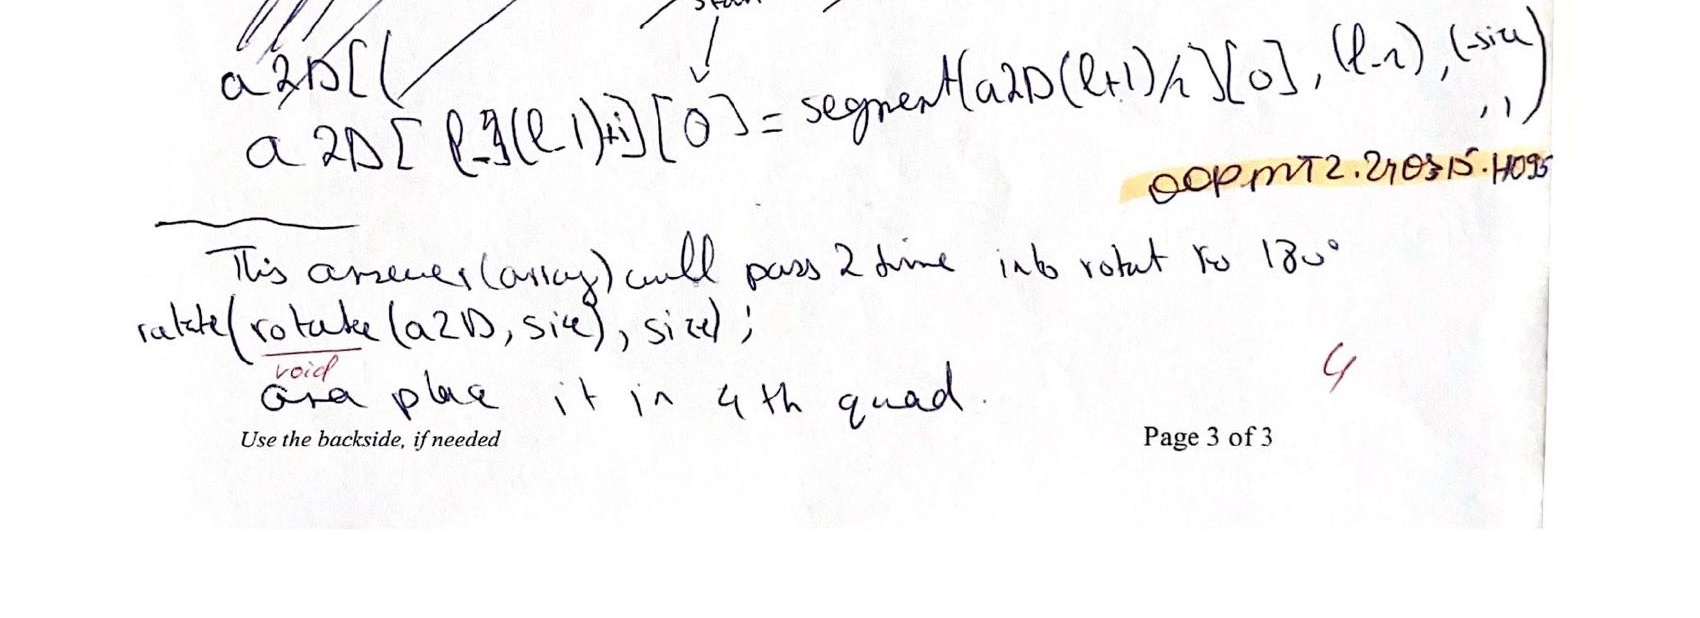 a2D[(
a2D[ (l-1)+i][0] = segment(a2D(l+1)/2][0], (l-1), (-size
,1)
OOPMT2.240315.H095
This answer (array) will pass 2 time into rotat to 180°
ratate(rotate(a2D, size), size);
void
and place it in 4th quad.
4
Use the backside, if needed
Page 3 of 3